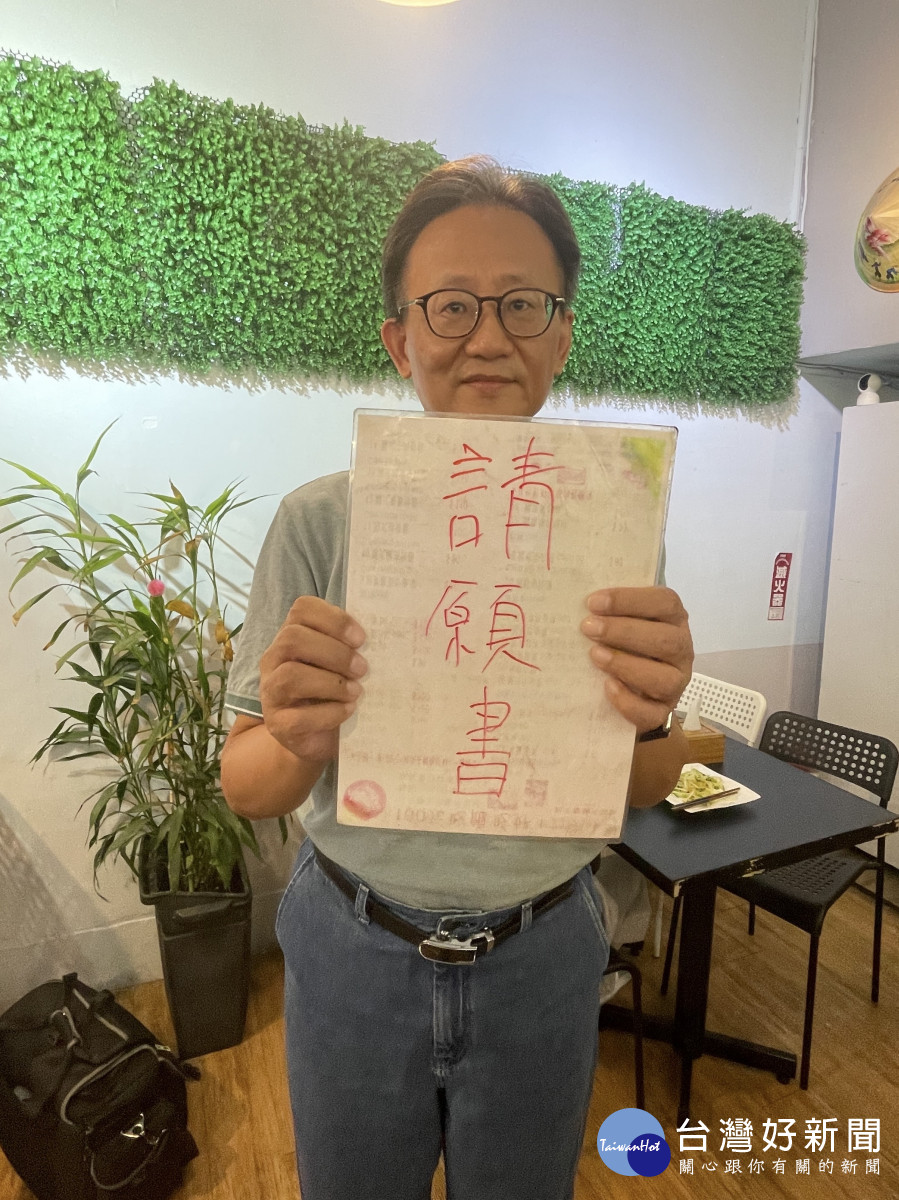 請願書
滅火器
TaiwanHot
台灣好新聞
關心跟你有關的新聞